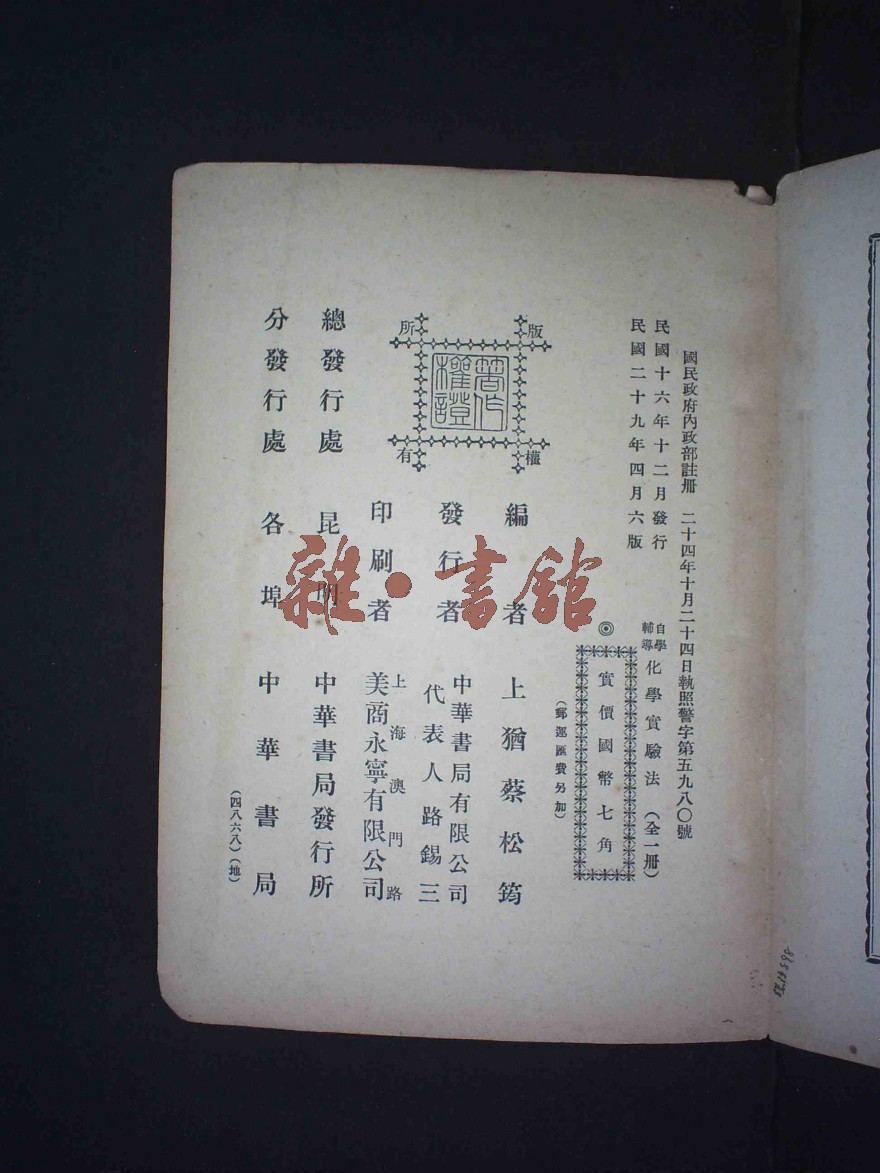 國民政府內政部註冊　二十四年十月二十四日執照警字第五九八〇號
民國十六年十二月發行
民國二十九年四月六版
自學輔導 化學實驗法（全一冊）
◎
實價國幣七角
（郵運匯費另加）
版權所有
著作權證
編者　上猶蔡松筠
發行者　中華書局有限公司
代表人路錫三
印刷者　上海澳門路
美商永寧有限公司
總發行處　昆明　中華書局發行所
分發行處　各埠　中華書局
（四八六八）（地）
雜·書館